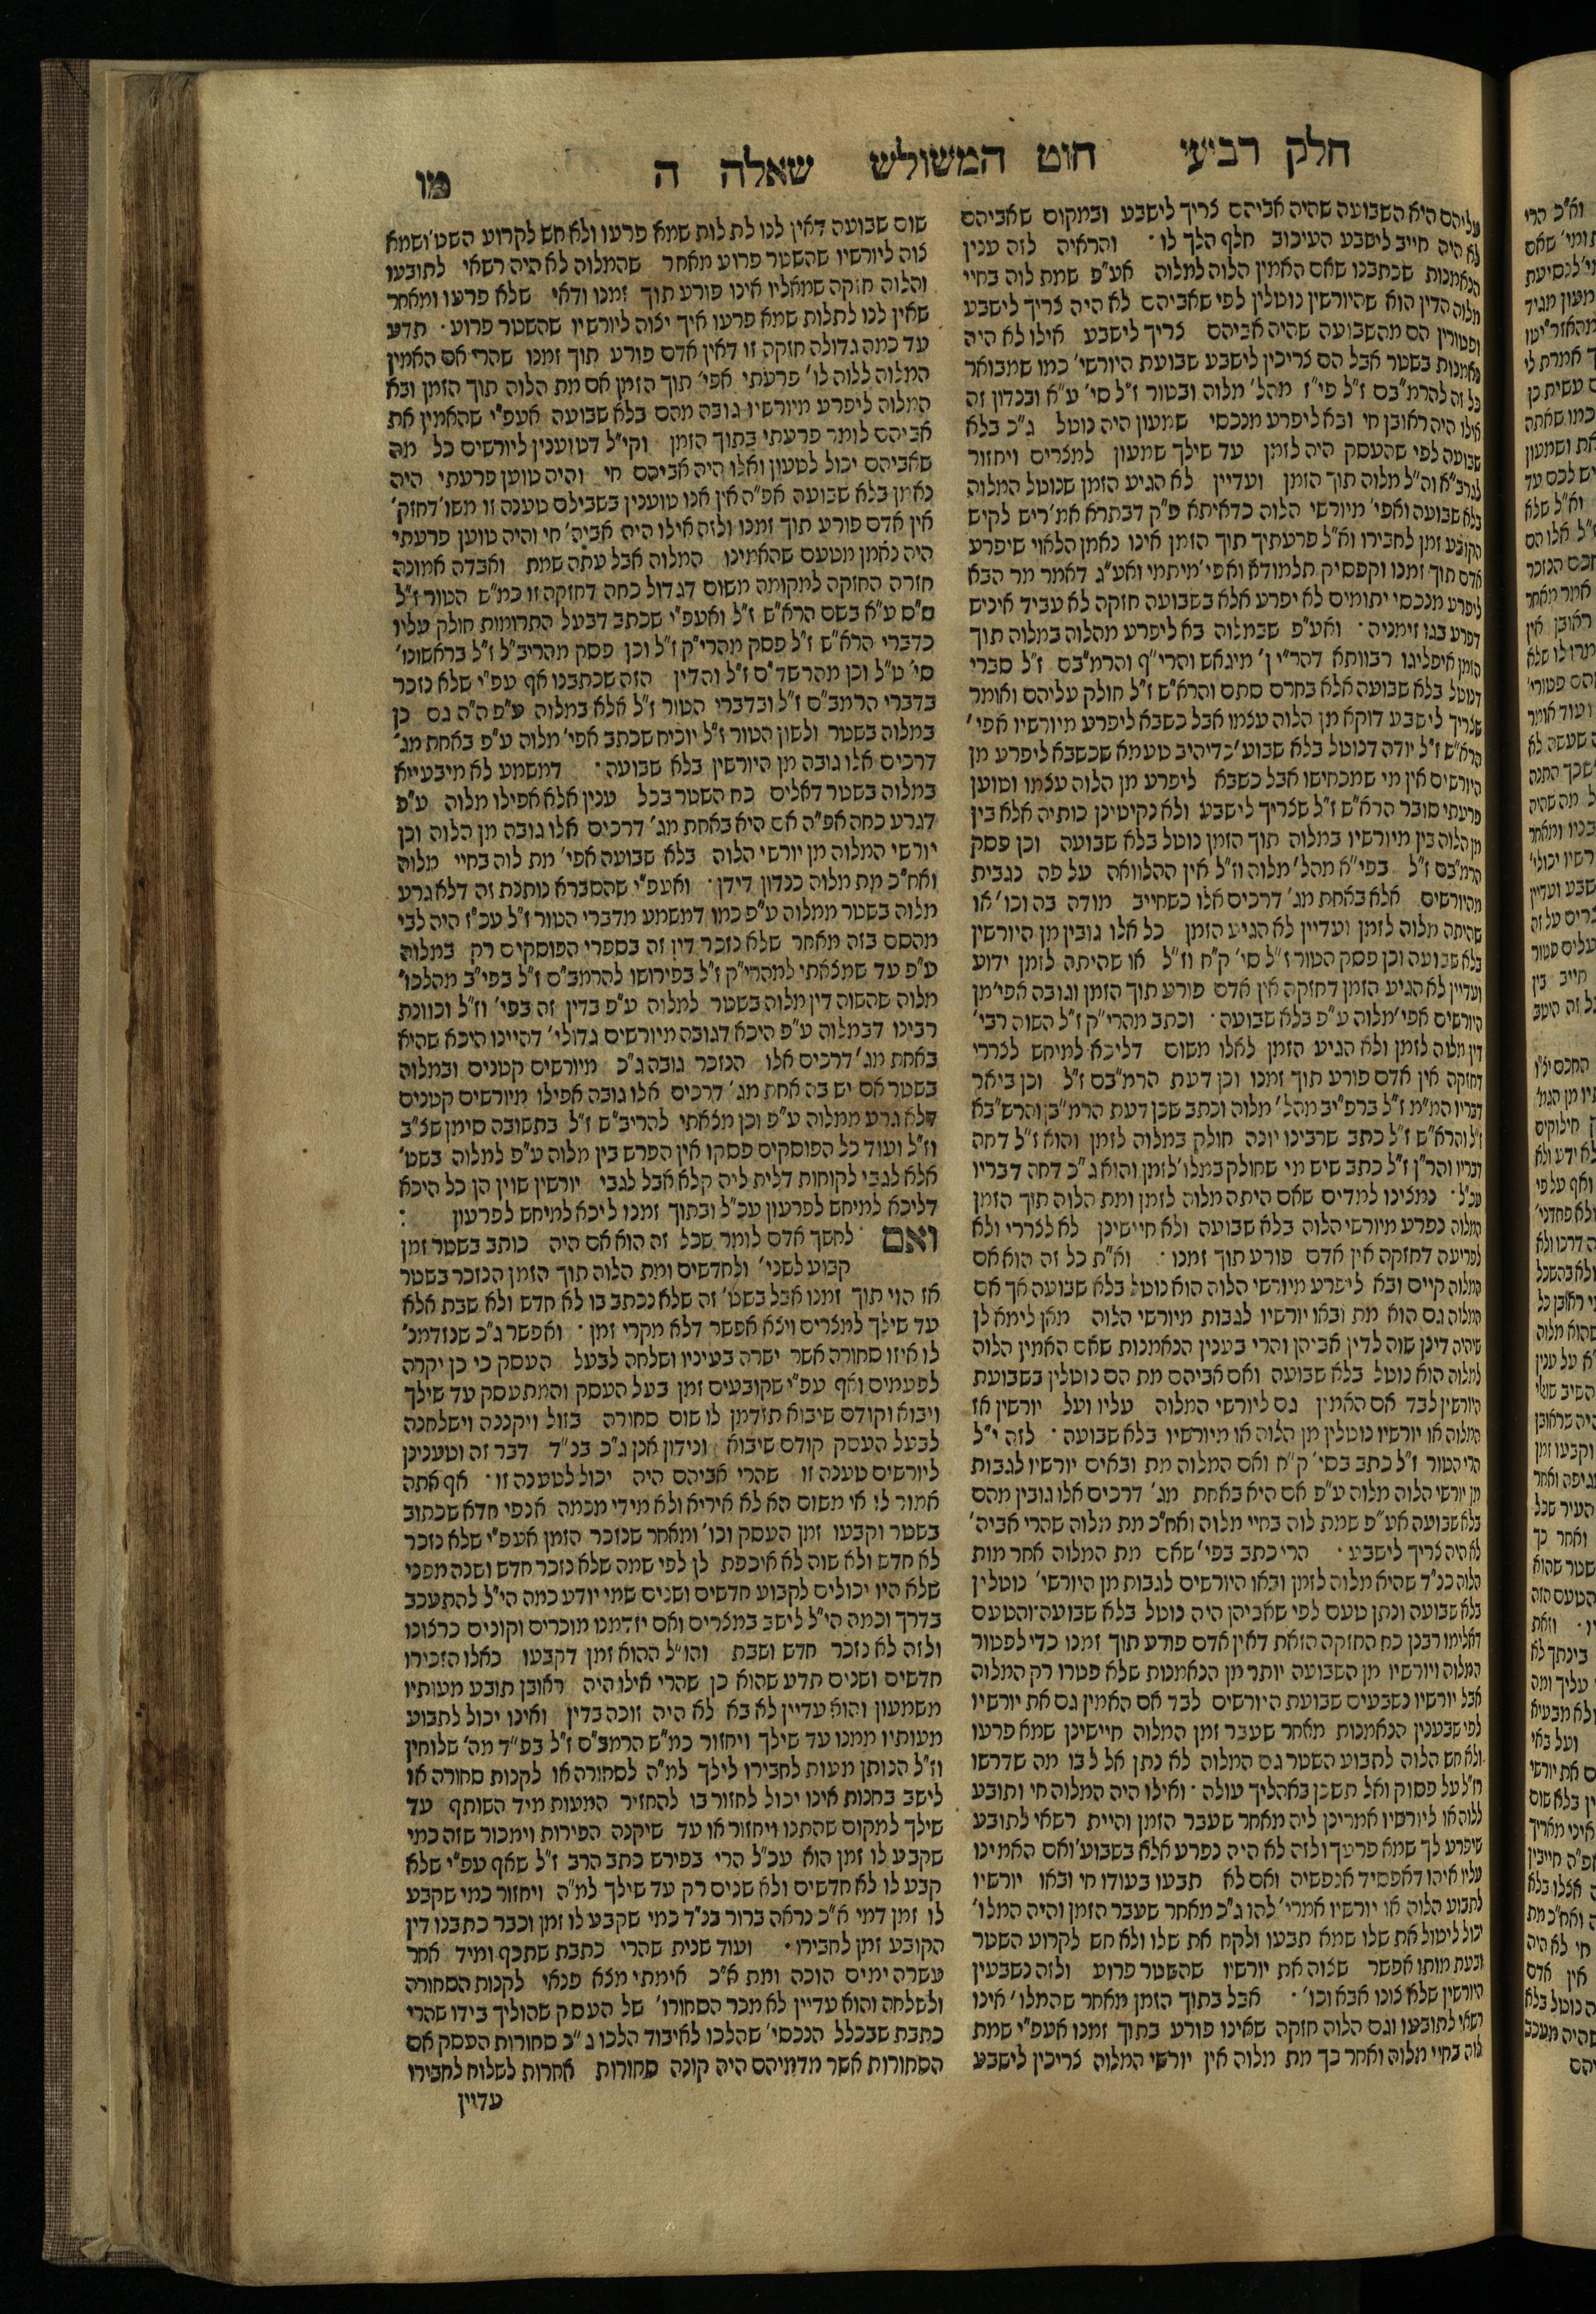 חלק רביעי חוט המשולש שאלה ה מו
עליהם היא השבועה שהיה אביהם צריך לישבע ובמקום שאביהם
לא היה חייב לישבע העיכוב חלף הלך לו · והראיה לזה ענין
הנאמנות שכתבנו שאם האמין הלוה למלוה אע"פ שמת לוה בחיי
מלוה הדין הוא שהיורשין נוטלין לפי שאביהם לא היה צריך לישבע
ופטורין הם מהשבועה שהיה אביהם צריך לישבע אילו לא היה
נאמנות בשטר אבל הם צריכין לישבע שבועת היורשי' כמו שמבואר
כל זה להרמ"בם ז"ל פי"ז מהל' מלוה ובטור ז"ל סי' ע"א ובנדון זה
אילו היה ראובן חי ובא ליפרע מנכסי שמעון היה נוטל ג"כ בלא
שבועה לפי שהעסק היה לזמן עד שילך שמעון למצרים ויחזור
לגרב"א וה"ל מלוה תוך הזמן ועדיין לא הגיע הזמן שנוטל המלוה
בלא שבועה ואפי' מיורשי הלוה כדאיתא פ"ק דבתרא אמ' ריש לקיש
הקובע זמן לחבירו וא"ל פרעתיך תוך הזמן אינו נאמן הלואי שיפרע
אדם תוך זמנו וקפסיק תלמודא ואפי' מיתמי ואע"ג דאמר מר הבא
ליפרע מנכסי יתומים לא יפרע אלא בשבועה חזקה לא עביד איניש
דפרע בגו זימניה · ואע"פ שבמלוה בא ליפרע מהלוה במלוה תוך
הזמן איפליגו רבוותא דהר"י ן' מיגאש והרי"ף והרמ"בם ז"ל סברי
דנוטל בלא שבועה אלא בחרם סתם והרא"ש ז"ל חולק עליהם ואומר
שצריך לישבע דוקא מן הלוה עצמו אבל כשבא ליפרע מיורשיו אפי'
הרא"ש ז"ל יודה דנוטל בלא שבוע' כדיהיב טעמא שכשבא ליפרע מן
היורשים אין מי שמכחישו אבל כשבא ליפרע מן הלוה עצמו וטוען
פרעתי סובר הרא"ש ז"ל שצריך לישבע ולא נקיטינן כותיה אלא בין
מן הלוה בין מיורשיו במלוה תוך הזמן נוטל בלא שבועה וכן פסק
הרמ"בם ז"ל בפי"א מהל' מלוה וז"ל אין ההלוואה על פה נגבית
מהיורשים אלא באחת מג' דרכים אלו כשחייב מודה בה וכו' או
שהיתה מלוה לזמן ועדיין לא הגיע הזמן כל אלו גובין מן היורשין
בלא שבועה וכן פסק הטור ז"ל סי' ק"ח וז"ל או שהיתה לזמן ידוע
ועדיין לא הגיע הזמן דחזקה אין אדם פורע תוך הזמן וגובה אפי' מן
היורשים אפי' מלוה ע"פ בלא שבועה · וכתב מהרי"ק ז"ל השוה רבי'
דין מלוה לזמן ולא הגיע הזמן לאלו משום דליכא למיחש לצררי
דחזקה אין אדם פורע תוך זמנו וכן דעת הרמ"בם ז"ל וכן ביאר
דבריו המ"מ ז"ל ברפ"יב מהל' מלוה וכתב שכן דעת הרמ"בן והרש"בא
ז"ל והרא"ש ז"ל כתב שרבינו יונה חולק במלוה לזמן והוא ז"ל דחה
דבריו והר"ן ז"ל כתב שיש מי שחולק במלו' לזמן והוא ג"כ דחה דבריו
עכ"ל · נמצינו למדים שאם היתה מלוה לזמן ומת הלוה תוך הזמן
המלוה נפרע מיורשי הלוה בלא שבועה ולא חיישינן לא לצררי ולא
לפריעה דחזקה אין אדם פורע תוך זמנו · וא"ת כל זה הוא אם
המלוה קיים ובא ליפרע מיורשי הלוה הוא נוטל בלא שבועה אך אם
המלוה גם הוא מת ובאו יורשיו לגבות מיורשי הלוה מאן לימא לן
שיהיה דינן שוה לדין אביהן והרי בענין הנאמנות שאם האמין הלוה
למלוה הוא נוטל בלא שבועה ואם אביהם מת הם נוטלין בשבועת
היורשין לבד אם האמין גם ליורשי המלוה עליו ועל יורשין אז
המלוה או יורשיו נוטלין מן הלוה או מיורשיו בלא שבועה · לזה י"ל
הרי הטור ז"ל כתב בסי' ק"ח ואם המלוה מת ובאים יורשיו לגבות
מן יורשי הלוה מלוה ע"פ אם היא באחת מג' דרכים אלו גובין מהם
בלא שבועה אע"פ שמת לוה בחיי מלוה ואח"כ מת מלוה שהרי אביה'
לא היה צריך לישבע · הרי כתב בפי' שאם מת המלוה אחר מות
הלוה כנ"ד שהיא מלוה לזמן ובאו היורשים לגבות מן היורשי' נוטלין
בלא שבועה ונתן טעם לפי שאביהן היה נוטל בלא שבועה · והטעם
דאלימו רבנן כח החזקה הזאת דאין אדם פורע תוך זמנו כדי לפטור
המלוה ויורשיו מן השבועה יותר מן הנאמנות שלא פטרו רק המלוה
אבל יורשיו נשבעים שבועת היורשים לבד אם האמין גם את יורשיו
לפי שבענין הנאמנות מאחר שעבר זמן המלוה חיישינן שמא פרעו
ולא חש הלוה לתבוע השטר גם המלוה לא נתן אל לבו מה שדרשו
רז"ל על פסוק ואל תשכן באהליך עולה · ואילו היה המלוה חי ותובע
ללוה או ליורשיו אמרינן ליה מאחר שעבר הזמן והיית רשאי לתובע
שיפרע לך שמא פרעך ולזה לא היה נפרע אלא בשבוע' ואם האמינו
עליו איהו דאפסיד אנפשיה ואם לא תבעו בעודו חי ובאו יורשיו
לתבוע הלוה או יורשיו אמרי' להו ג"כ מאחר שעבר הזמן והיה המלו'
יכול ליטול את שלו שמא תבעו ולקח את שלו ולא חש לקרוע השטר
ובעת מותו אפשר שצוה את יורשיו שהשטר פרוע ולזה נשבעין
היורשין שלא צונו אבא וכו' · אבל בתוך הזמן מאחר שהמלו' אינו
רשאי לתובעו וגם הלוה חזקה שאינו פורע בתוך זמנו אעפ"י שמת
לוה בחיי מלוה ואחר כך מת מלוה אין יורשי המלוה צריכין לישבע
שום שבועה דאין לנו לתלות שמא פרעו ולא חש לקרוע השט' ושמא
צוה ליורשיו שהשטר פרוע מאחר שהמלוה לא היה רשאי לתובעו
והלוה חזקה שמאליו אינו פורע תוך זמנו ודאי שלא פרעו ומאחר
שאין לנו לתלות שמא פרעו איך יצוה ליורשיו שהשטר פרוע · תדע
עד כמה גדולה חזקה זו דאין אדם פורע תוך זמנו שהרי אם האמין
המלוה ללוה לו' פרעתי אפי' תוך הזמן אם מת הלוה תוך הזמן ובא
המלוה ליפרע מיורשיו גובה מהם בלא שבועה אעפ"י שהאמין את
אביהם לומר פרעתי בתוך הזמן וקי"ל דטוענין ליורשים כל מה
שאביהם יכול לטעון ואלו היה אביהם חי והיה טוען פרעתי היה
נאמן בלא שבועה אפ"ה אין אנו טוענין בשבילם טענה זו משו' דחזק'
אין אדם פורע תוך זמנו ולזה אילו היה אביה' חי והיה טוען פרעתי
היה נאמן מטעם שהאמינו המלוה אבל עתה שמת ואבדה אמונה
חזרה החזקה למקומה משום דגדול כחה דחזקה זו כמ"ש הטור ז"ל
ס"ס ע"א בשם הרא"ש ז"ל ואעפ"י שכתב דבעל התרומות חולק עליו
כדברי הרא"ש ז"ל פסק מהרי"ק ז"ל וכן פסק מהריב"ל ז"ל בראשונו'
סי' ט"ל וכן מהרשד"ם ז"ל והדין הזה שכתבנו אף עפ"י שלא נזכר
בדברי הרמב"ם ז"ל ובדברי הטור ז"ל אלא במלוה ע"פ ה"ה גם כן
במלוה בשטר ולשון הטור ז"ל יוכיח שכתב אפי' מלוה ע"פ באחת מג'
דרכים אלו גובה מן היורשין בלא שבועה · דמשמע לא מיבעייא
במלוה בשטר דאלים כח השטר בכל ענין אלא אפילו מלוה ע"פ
דגרע כחה אפ"ה אם היא באחת מג' דרכים אלו גובה מן הלוה וכן
יורשי המלוה מן יורשי הלוה בלא שבועה אפי' מת לוה בחיי מלוה
ואח"כ מת מלוה כנדון דידן · ואעפ"י שהסברא נותנת זה דלא גרע
מלוה בשטר ממלוה ע"פ כמו דמשמע מדברי הטור ז"ל עכ"ז היה לבי
מהסס בזה מאחר שלא נזכר דין זה בספרי הפוסקים רק במלוה
ע"פ עד שמצאתי למהרי"ק ז"ל בפירושו להרמב"ם ז"ל בפי"ב מהלכו'
מלוה שהשוה דין מלוה בשטר למלוה ע"פ בדין זה בפי' וז"ל וכוונת
רבינו דבמלוה ע"פ היכא דגובה מיורשים גדולי' דהיינו היכא שהיא
באחת מג' דרכים אלו הנזכר גובה ג"כ מיורשים קטנים ובמלוה
בשטר אם יש בה אחת מג' דרכים אלו גובה אפילו מיורשים קטנים
דלא גרע ממלוה ע"פ וכן מצאתי להריב"ש ז"ל בתשובה סימן שצ"ב
וז"ל ועוד כל הפוסקים פסקו אין הפרש בין מלוה ע"פ למלוה בשט'
אלא לגבי לקוחות דלית ליה קלא אבל לגבי יורשין שוין הן כל היכא
דליכא למיחש לפרעון עכ"ל ובתוך זמנו ליכא למיחש לפרעון :
ואם לחשך אדם לומר שכל זה הוא אם היה כותב בשטר זמן
קבוע לשני' ולחדשים ומת הלוה תוך הזמן הנזכר בשטר
אז הוי תוך זמנו אבל בשט' זה שלא נכתב בו לא חדש ולא שבת אלא
עד שילך למצרים ויצא אפשר דלא מקרי זמן · ואפשר ג"כ שנזדמנ'
לו איזו סחורה אשר ישרה בעיניו ושלחה לבעל העסק כי כן יקרה
לפעמים ואף עפ"י שקובעים זמן בעל העסק והמתעסק עד שילך
ויבוא וקודם שיבוא תזדמן לו שום סחורה בזול ויקננה וישלחנה
לבעל העסק קודם שיבוא ונידון אכן ג"כ בנ"ד דבר זה וטענינן
ליורשים טענה זו שהרי אביהם היה יכול לטענה זו · אף אתה
אמור לו אי משום הא לא איריא ולא מידי מכמה אנפי חדא שכתוב
בשטר וקבעו זמן העסק וכו' ומאחר שנזכר הזמן אעפ"י שלא נזכר
לא חדש ולא שוה לא איכפת לן לפי שמה שלא נזכר חדש ושנה מפני
שלא היו יכולים לקבוע חדשים ושנים שמי יודע כמה הי"ל להתעכב
בדרך וכמה הי"ל לישב במצרים ואם יזדמנו מוכרים וקונים כרצונו
ולזה לא נזכר חדש ושבת והו"ל ההוא זמן דקבעו כאלו הזכירו
חדשים ושנים תדע שהוא כן שהרי אילו היה ראובן תובע מעותיו
משמעון והוא עדיין לא בא לא היה זוכה בדין ואינו יכול לתבוע
מעותיו ממנו עד שילך ויחזור כמ"ש הרמב"ם ז"ל בפ"ד מה' שלוחין
וז"ל הנותן מעות לחבירו לילך למ"ה לסחורה או לקנות סחורה או
לישב בחנות אינו יכול לחזור בו להחזיר המעות מיד השותף עד
שילך למקום שהתנו ויחזור או עד שיקנה הפירות וימכור שזה כמי
שקבע לו זמן הוא עכ"ל הרי בפירש כתב הרב ז"ל שאף עפ"י שלא
קבע לו לא חדשים ולא שנים רק עד שילך למ"ה ויחזור כמי שקבע
לו זמן דמי א"כ נראה ברור בנ"ד כמי שקבע לו זמן וכבר כתבנו דין
הקובע זמן לחבירו · ועוד שנית שהרי כתבת שתכף ומיד אחר
עשרה ימים הוכה ומת א"כ אימתי מצא פנאי לקנות הסחורה
ולשלחה והוא עדיין לא מכר הסחורו' של העסק שהוליך בידו שהרי
כתבת שבכלל הנכסי' שהלכו לאיבוד הלכו ג"כ סחורות העסק אם
הסחורות אשר מדמיהם היה קונה סחורות אחרות לשלוח לחבירו
עדיין